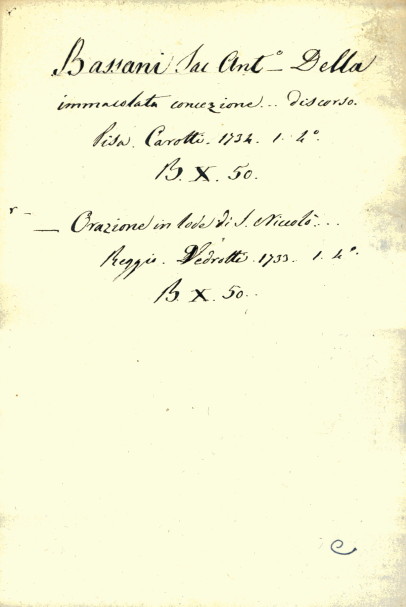 Bassani Jac Ant.º Della
immacolata concezione... discorso.
Pisa. Carotti. 1734. 1. 4º.
B. X. 50.
— Orazione in lode di S. Niccolò...
Reggio. Vedrotti. 1733. 1. 4º.
B. X. 50.